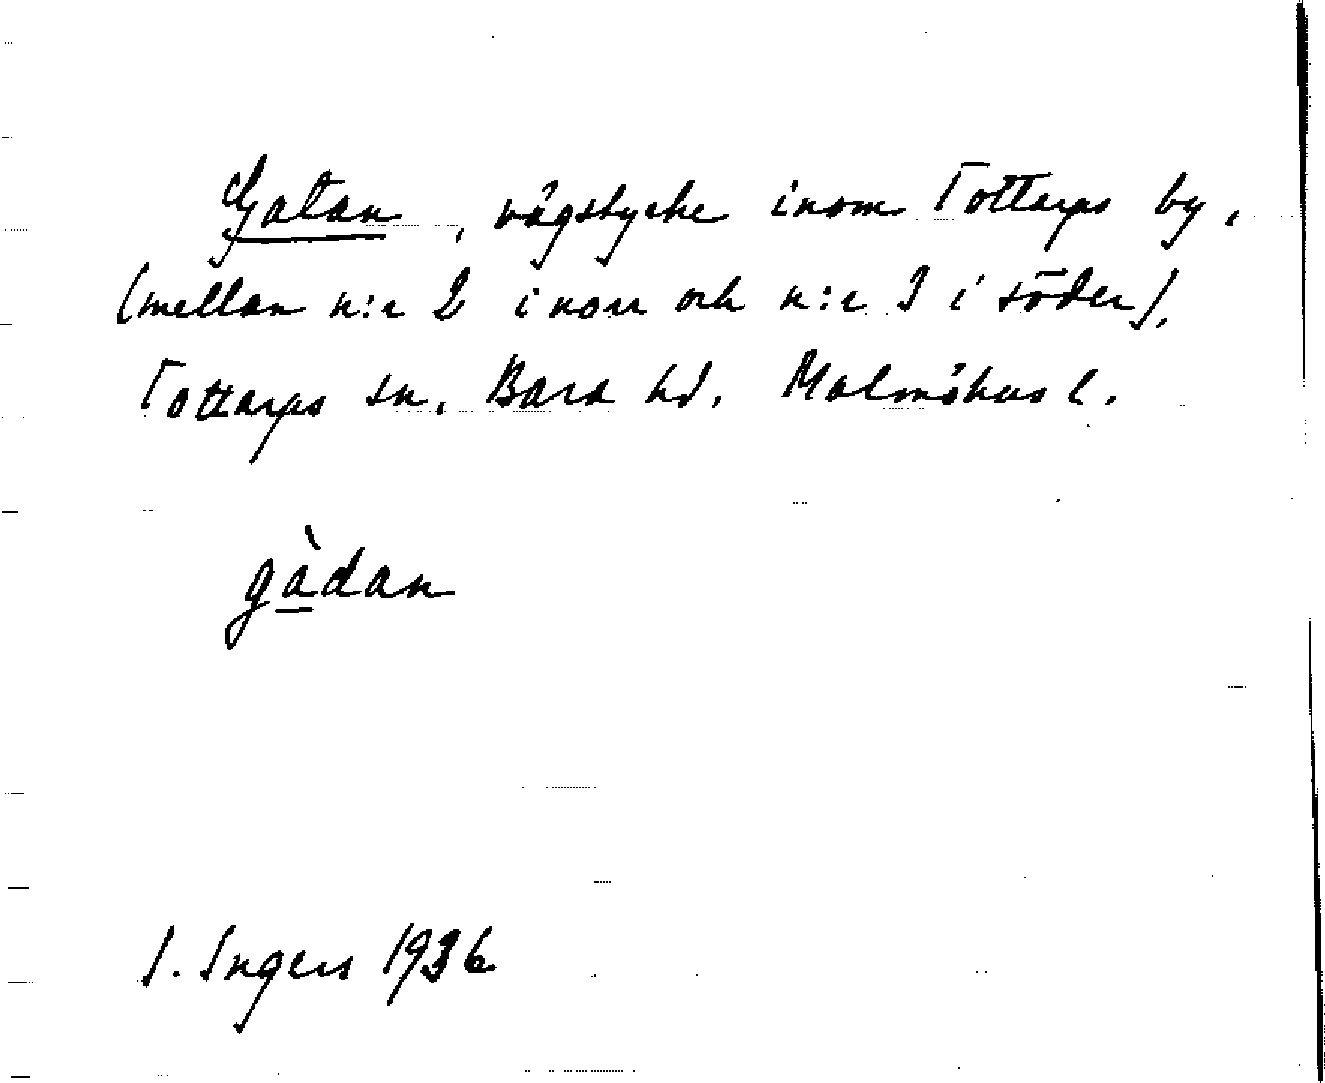 Gatan, vägstycke inom Tottarps by,
(mellan n:r 2 i norr och n:r 3 i söder),
Tottarps sn. Bara hd. Malmöhus l.
gàdan
I. Ingers 1936